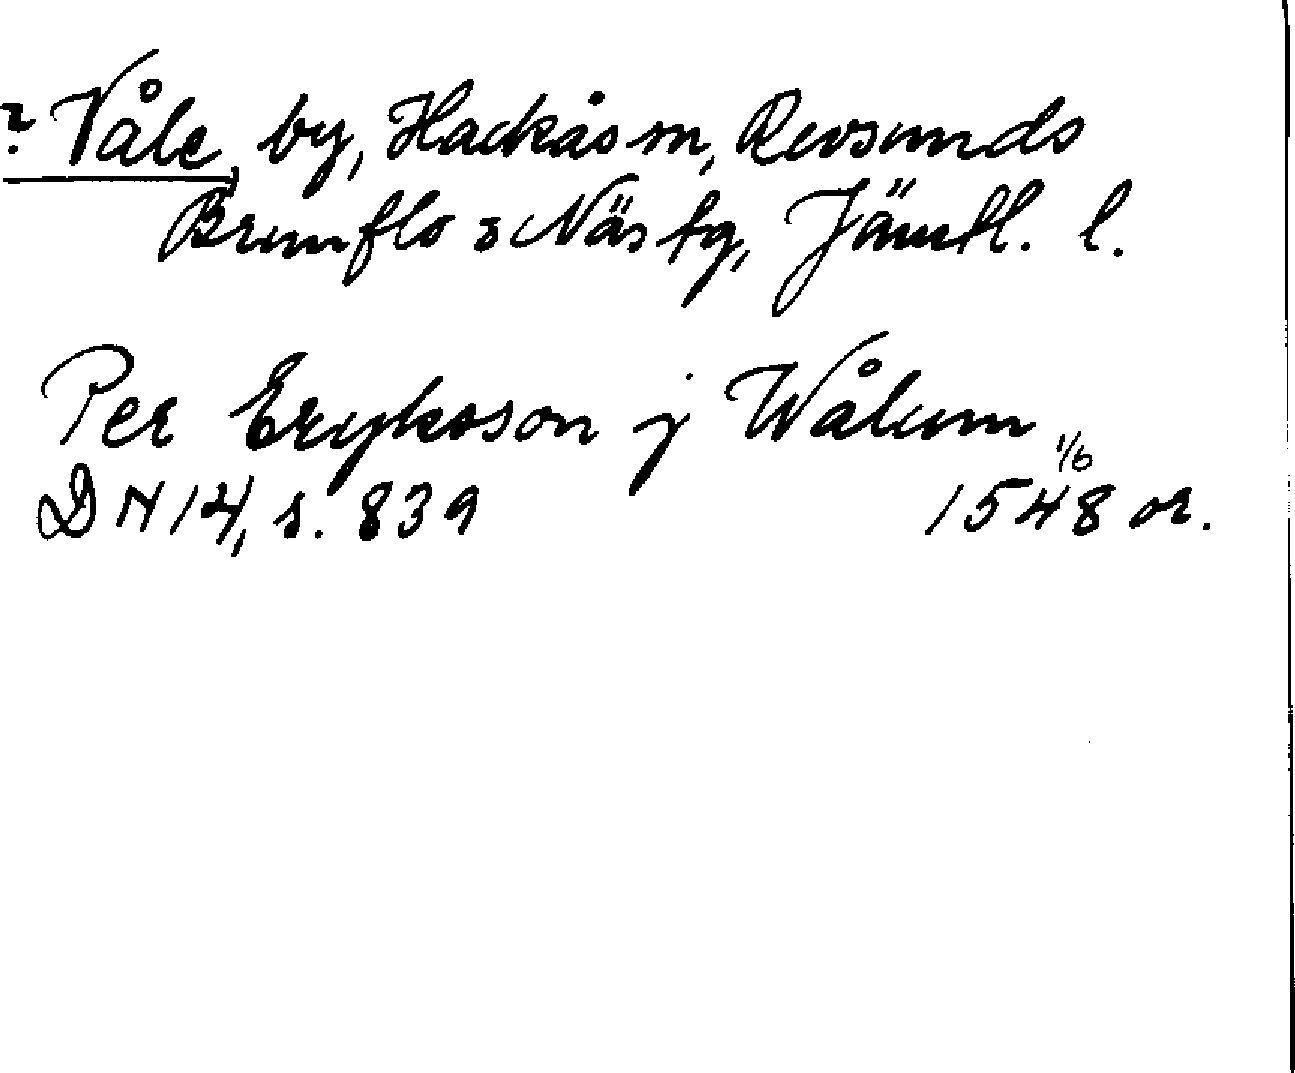 ? Våle, by, Hackås sn, Revsunds
Brunflo o Näs tg, Jämtl. l.
Per Eryksson j Wålum
1/6
DN 14, s. 839 1548 or.